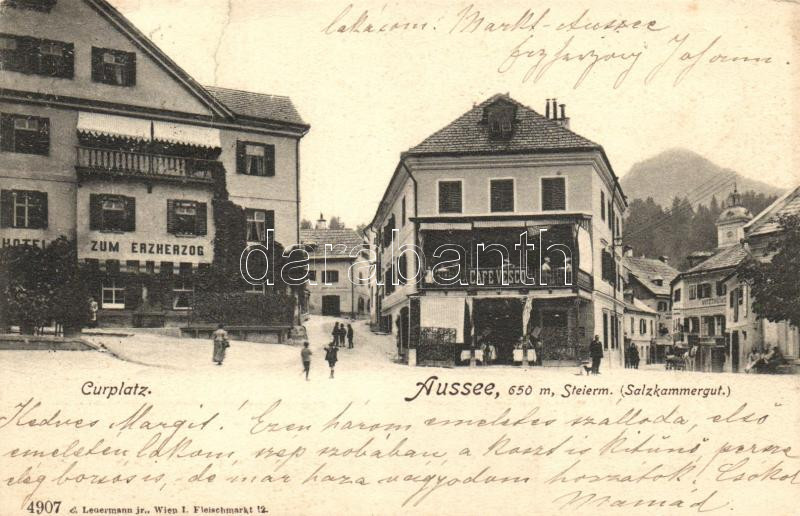 lakásom: Markt-Aussee
Erzherzog Johann
HOTEL
ZUM ERZHERZOG
CAFÉ VESCO
darabanth
Curplatz.
Aussee, 650 m, Steierm. (Salzkammergut.)
Kedves Margit! Ezen három emeletes szálloda, első
emeleten lakom, szép szobában a koszt is kitűnő, persze
elég borsos is, de már haza vágyodom hozzátok! Csókol
Mamád
4907 C. Ledermann jr., Wien I. Fleischmarkt 12.